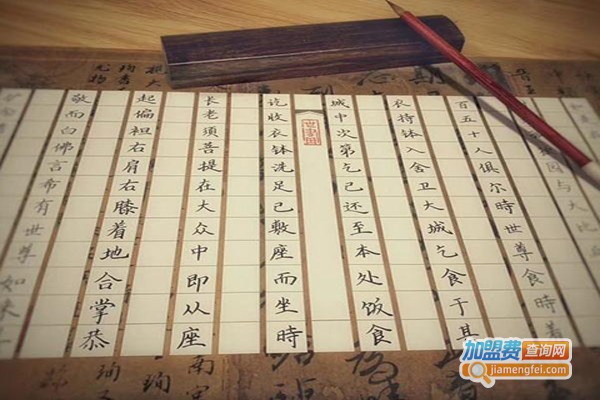 园与大比丘
百五十人俱尔時世尊食時着
衣持钵入舍卫大城乞食于其
城中次第乞已还至本处饭食
讫收衣钵洗足已敷座而坐時
長老須菩提在大众中即从座
起偏袒右肩右膝着地合掌恭
敬而白佛言希有世尊如来
加盟费查询网
jiamengfei.com